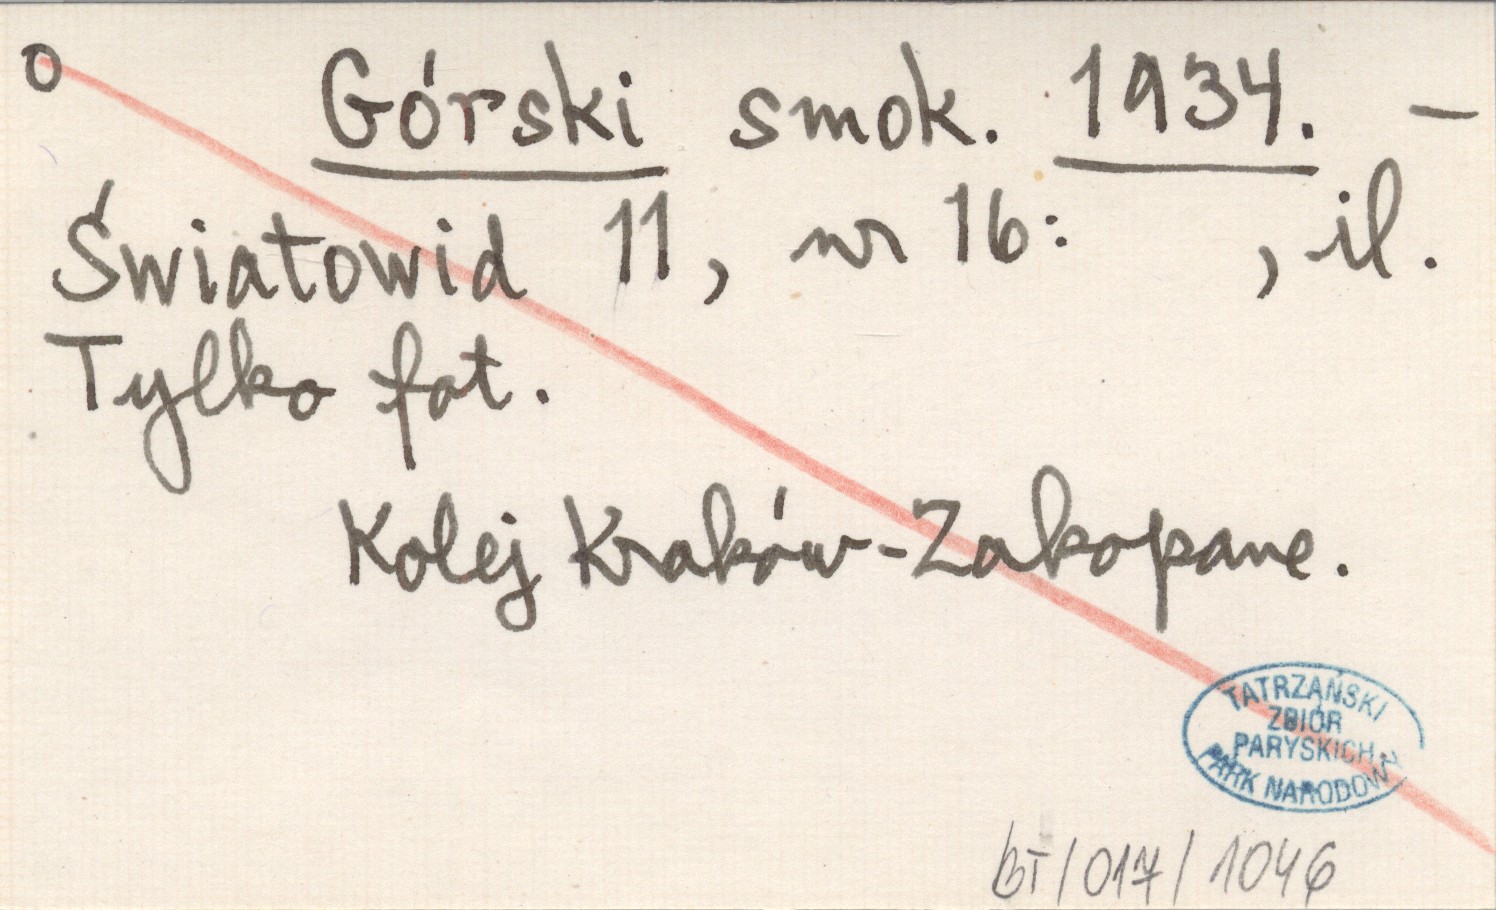 O
Górski smok. 1934. —
Światowid 11, nr 16: , il.
Tylko fot.
Kolej Kraków-Zakopane.
TATRZAŃSKI
ZBIÓR
PARYSKICH
PARK NARODOWY
BT/017/1046